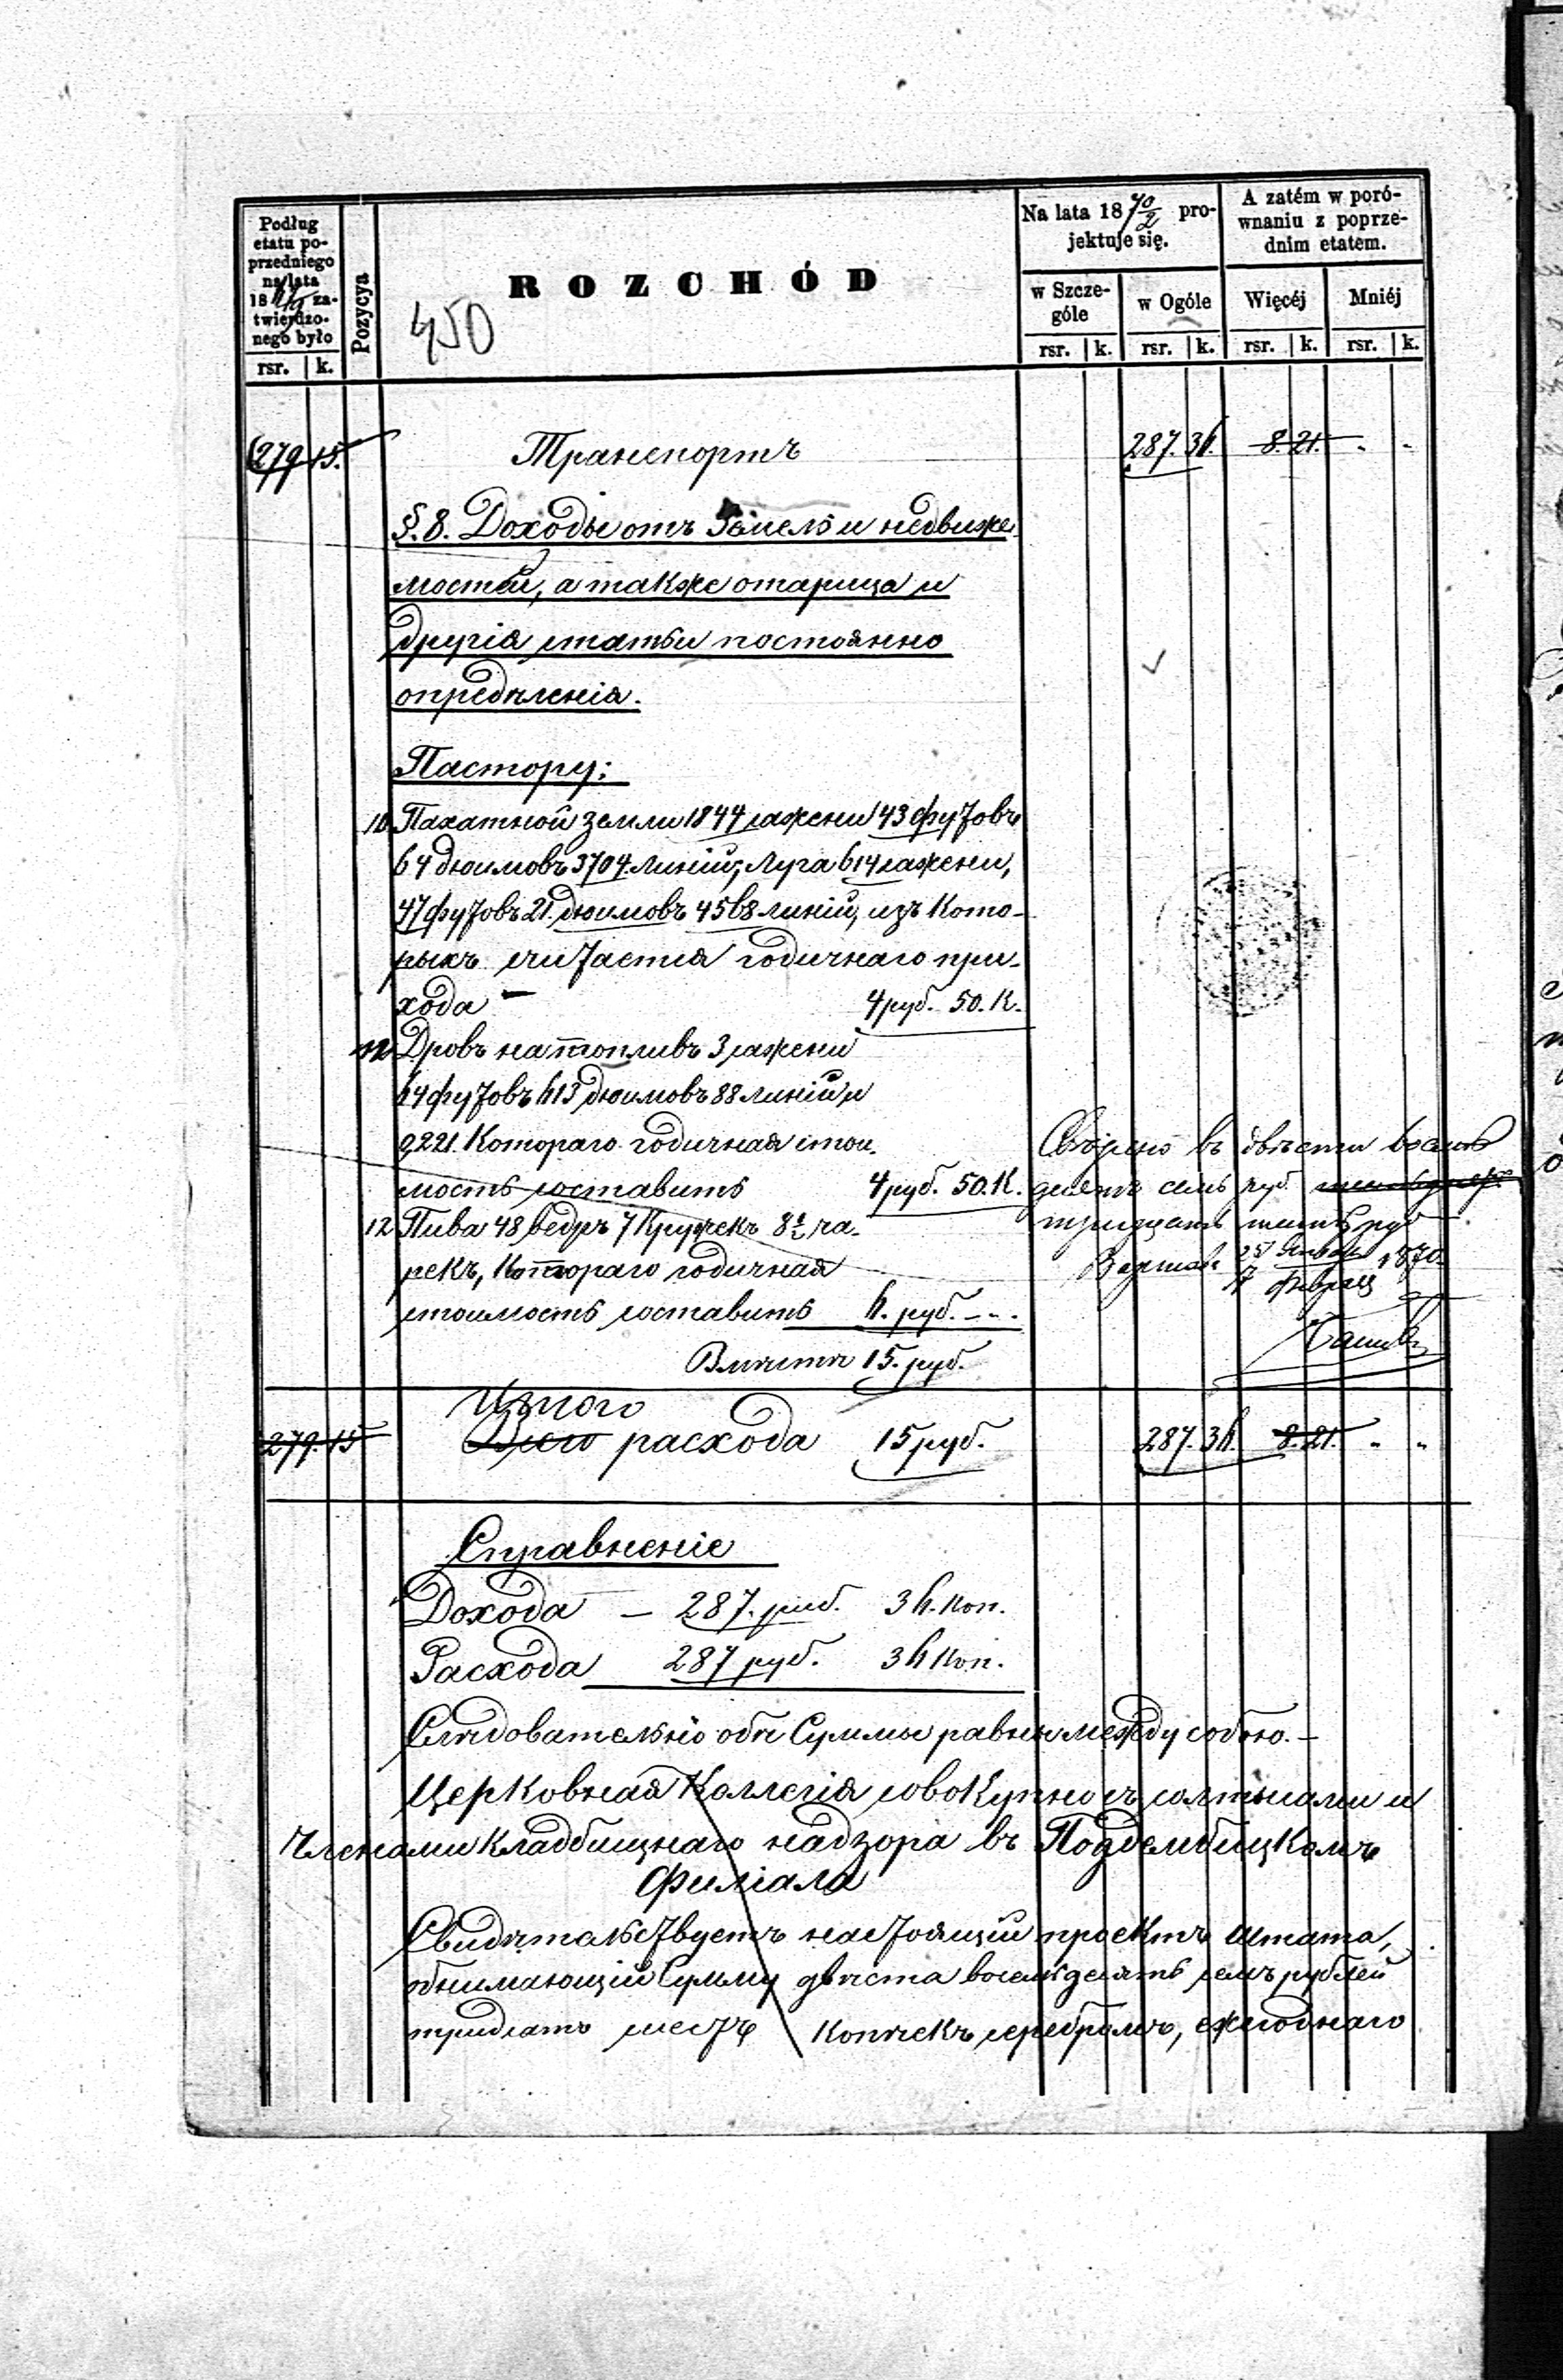 Podług
etatu po-
przedniego
na lata
18 za-
twierdzo-
nego było
rsr. k.
Pozycya
ROZCHÓD
450
Na lata 18 70/2 pro-
jektuje się.
w Szcze-
góle
w Ogóle
rsr. k. rsr. k.
A zatém w poró-
wnaniu z poprze-
dnim etatem.
Więcéj Mniéj
rsr. k. rsr. k.
279 15. Транспортъ 287. 36. 8. 21. - -
§. 8. Доходы отъ Земель и недвиже-
мостей, а также
другія статьи постоянно
опредѣленія.
Пастору:
10 Пахатной земли 1844 сажени 43 футовъ
64 дюимовъ 3704 линій; Луга 614 сажени,
47 футовъ 21 дюимовъ 4568 линій, изъ Кото-
рыхъ считается годичнаго при-
хода 4 руб. 50. К.
Дровъ на топливъ 3 сажени
64 футовъ 613 дюимовъ 88 линій и
0,221 Котораго годичная стои-
мость составитъ 4 руб. 50. К.
12 Пива 48 ведръ 7 Кружекъ 8½ ча-
рекъ, Котораго годичная
стоимость составитъ 6. руб. - - .
Вмѣстѣ 15. руб.
въ двѣсти восемь
десятъ семь руб.
тридцать
25 Января 1870
Февраля
Итого
279. 15 Всего расхода 15 руб. 287. 36. 8. 21. " "
Справненіе
Дохода — 287. руб. 36. Коп.
Расхода 287 руб. 36 Коп.
Слѣдовательно обѣ Суммы равны между собою. –
Церковная Коллегія совокупно съ солтысами и
Членами Кладбищнаго надзора въ Поддембицкомъ
Филіала
Свидѣтельствуетъ настоящій проектъ Штата,
обнимающій Сумму двѣста восемьдесять семь рублей
тридсать шесть Копѣекъ серебромъ, ежегоднаго